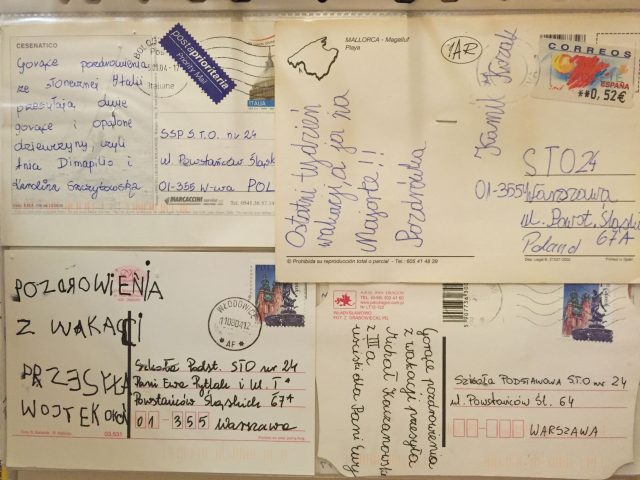 CESENATICO
Gorące pozdrowienia
ze słonecznej Italii
przesyłają dwie
gorące i opalone
dziewczyny, czyli
Ania Dimapilis i
Karolina Szczytowska
postaprioritaria
Priority Mail
ITALIA
SSP S.T.O. nr 24
ul. Powstańców Śląsk
01-355 W-wa POL
MARCACCINI
MALLORCA - Magaluf
Playa
1AR
CORREOS
ESPAÑA
**0,52€
Ostatni tydzień
wakacji a ja na
Majorce!!
Pozdrówka
Kamil Kozak
STO 24
01-355 Warszawa
ul. Powst. Śląski
67A
Poland
© Prohibida su reproducción total o parcial - Tel.: 605 41 48 39
Printed in Spain
POZDROWIENIA
Z WAKACJI
PRZESYŁA
WOJTEK
Szkoła Podst. STO nr 24
Pani Ewa Pytlak i kl. I
Powstańców Śląskich 67A
01 355 Warszawa
03.531
WŁADYSŁAWOWO
FOT. Z. GRABOWIECKI
Gorące pozdrowienia
z wakacji przesyła
Michał Kaczanowski
z III a
uściski dla Pani Ewy
SZKOŁA PODSTAWOWA S.T.O nr 24
ul. POWSTAŃCÓW ŚL. 64
WARSZAWA